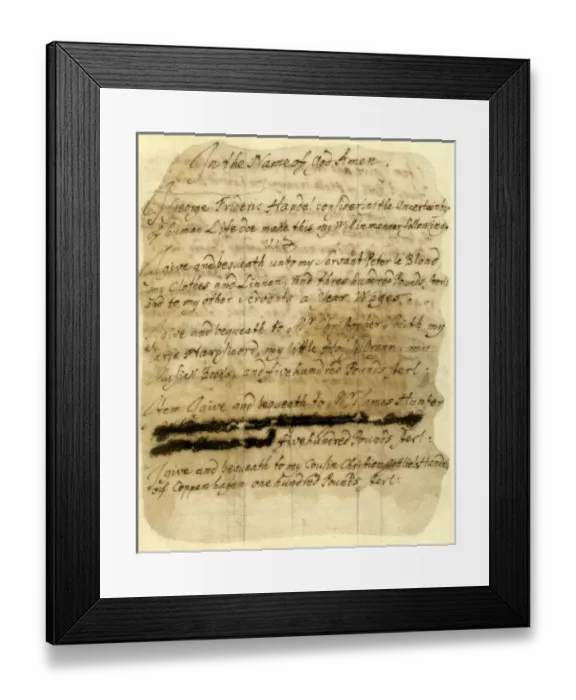 In the Name of God Amen.
I George Frideric Handel considering the Uncertainty
of human Life doe make this my Will in manner following
Viz.
I give and bequeath unto my Servant Peter le Blond
my Clothes and Linnen, and three hundred Pounds sterl:
and to my other Servants a Year Wages.
I give and bequeath to Mr Christopher Smith my
large Harpsicord, my little House Organ, my
Musick Books, and five hundred Pounds sterl:
Item I give and bequeath to Mr James Hunter
five hundred Pounds sterl:
I give and bequeath to my Cousin Christian Gottlieb Handel
of Coppenhagen one hundred Pounds sterl: